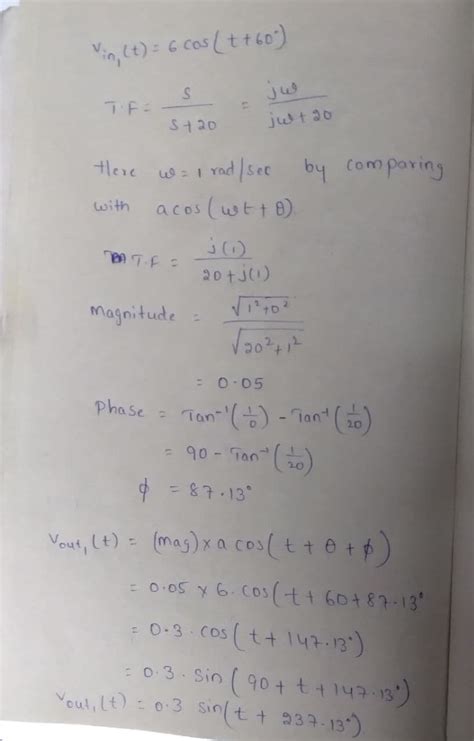 Vin₁(t) = 6 cos(t+60°)
T.F = s/(s+20) = jω/(jω+20)
Here ω = 1 rad/sec by comparing
with a cos(ωt+θ)
T.F = j(1)/(20+j(1))
Magnitude = √(1²+0²)/√(20²+1²)
= 0.05
Phase = Tan⁻¹(1/0) - Tan⁻¹(1/20)
= 90 - Tan⁻¹(1/20)
ϕ = 87.13°
Vout₁(t) = (mag) x a cos(t + θ + ϕ)
= 0.05 x 6. cos(t + 60 + 87.13°
= 0.3 . cos(t + 147.13°)
= 0.3 . sin(90 + t + 147.13°)
Vout₁(t) = 0.3 sin(t + 237.13°)